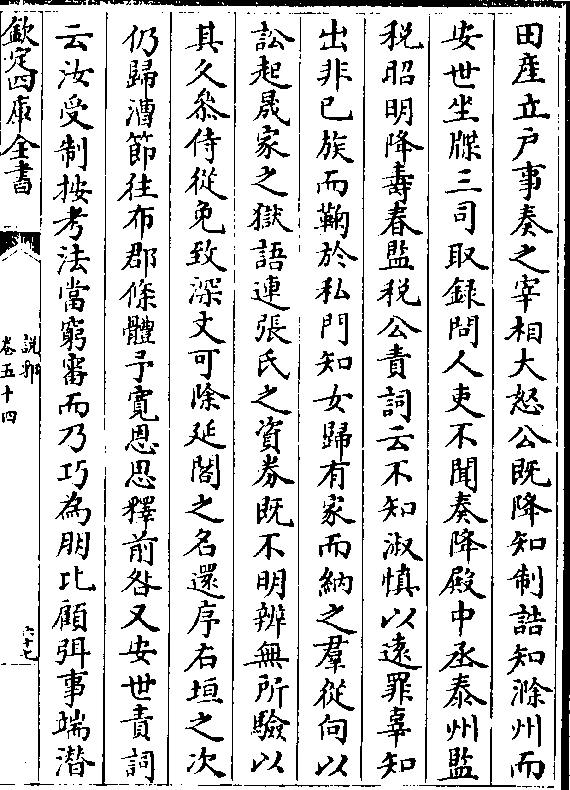 田產立戶事奏之宰相大怒公既降知制誥知滁州而
安世坐牒三司取録問人吏不聞奏降殿中丞泰州監
稅昭明降壽春監稅公責詞云不知淑慎以遠罪辜知
出非已族而鞠於私門知女歸有家而納之羣從向以
訟起晟家之獄語連張氏之資券既不明辨無所驗以
其久叅侍從免致深文可除延閣之名還序右垣之次
仍歸漕節往布郡條體予寛恩思釋前咎又安世責詞
云汝受制按考法當窮審而乃巧為朋比顧弭事端潛
欽定四庫全書
說郛
卷五十四
六十七